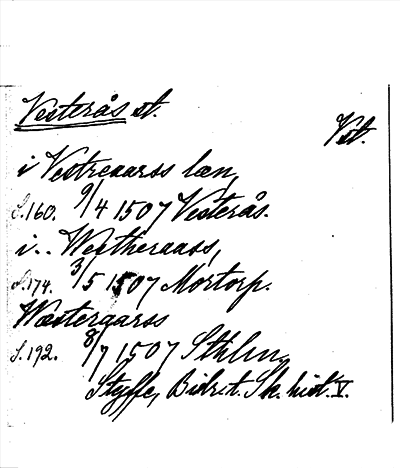 Vesterås st.
Vst.
i Vestreaarss læn,
S.160. 9/4 1507 Vesterås.
i.. Westheraass,
S.174. 3/5 1507 Mortorp.
Wæstergarss
S.192. 8/7 1507 Sthlm.
Styffe, Bidr. t. Sk. hist. V.